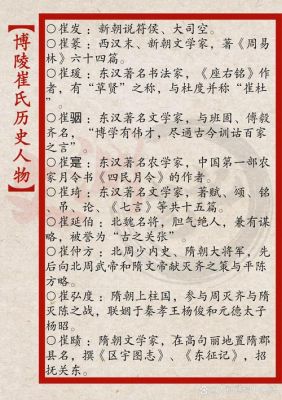 【博陵崔氏历史人物】
○崔发：新朝说符侯、大司空。
○崔篆：西汉末、新朝文学家，著《周易
林》六十四篇。
○崔瑗：东汉著名书法家，《座右铭》作
者，有“草贤”之称，与杜度并称“崔
杜”。
○崔骃：东汉著名文学家，与班固、傅毅
齐名，“博学有伟才，尽通古今训诂百家
之言”。
○崔寔：东汉著名农学家，中国第一部农
家月令书《四民月令》的作者。
○崔琦：东汉著名文学家，著赋、颂、铭
、吊、论、《七言》等共十五篇。
○崔延伯：北魏名将，胆气绝人，兼有谋
略，被誉为“古之关张”。
○崔仲方：北周少内史、隋朝大将军，先
后向北周武帝和隋文帝献灭齐之策与平陈
方略。
○崔弘度：隋朝上柱国，参与周灭齐与隋
灭陈之战，联姻于秦孝王杨俊和元德太子
杨昭。
○崔赜：隋朝文学家，在高句丽地置隋郡
县名，撰《区宇图志》、《东征记》，招
抚关东。